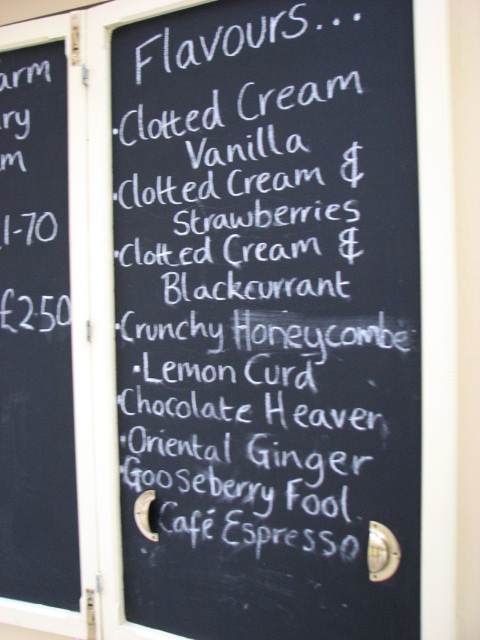 arm
ry
m
1-70
£2.50
Flavours...
·Clotted Cream
Vanilla
·Clotted Cream &
Strawberries
·Clotted Cream &
Blackcurrant
·Crunchy Honeycombe
·Lemon Curd
·Chocolate Heaven
·Oriental Ginger
·Gooseberry Fool
Café Espresso